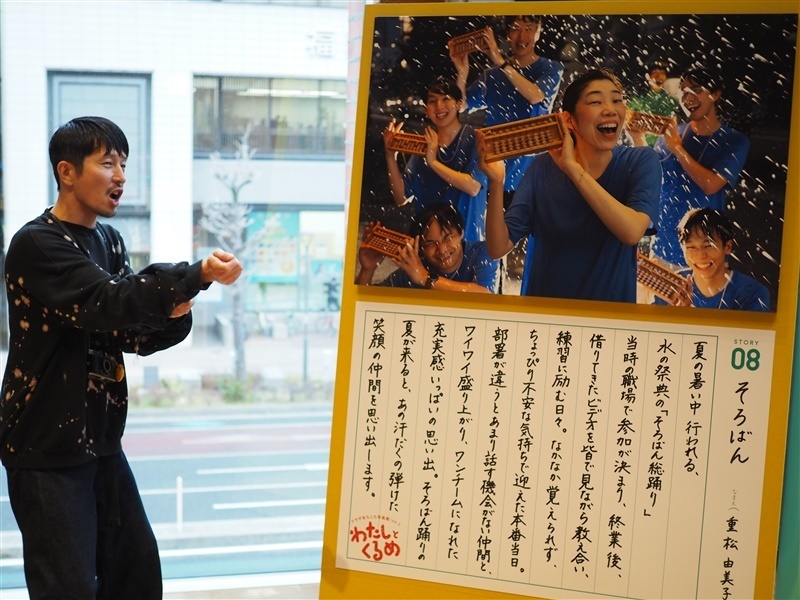 STORY
08
そろばん
なまえ
重松 由美子
夏の暑い中 行われる、
水の祭典の「そろばん総踊り」
当時の職場で参加が決まり、終業後、
借りてきたビデオを皆で見ながら教え合い、
練習に励む日々。なかなか覚えられず、
ちょっぴり不安な気持ちで迎えた本番当日。
部署が違うとあまり話す機会がない仲間と、
ワイワイ盛り上がり、ワンチームになれた
充実感いっぱいの思い出。そろばん踊りの
夏が来ると、あの汗だくの弾けた
笑顔の仲間を思い出します。
わたしと
くるめ
福